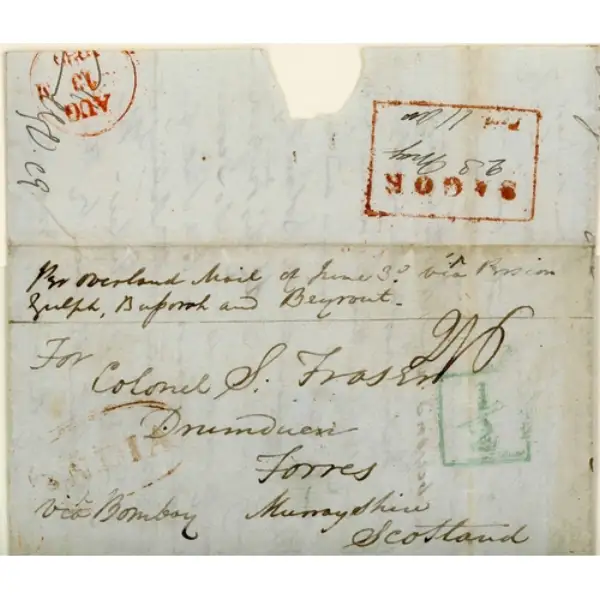 AUG
13
SAGOR
23 May
Paid 11 As
Per Overland Mail of June 3d via Persian
Gulph, Bussorah and Beyrout.
For
2/6
Colonel S. Fraser
Drumduan
INDIA
Forres
via Bombay Murrayshire
Scotland